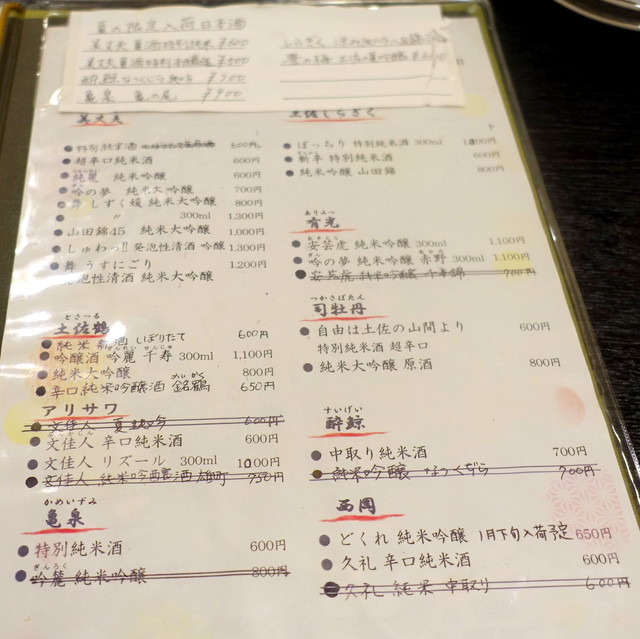 夏の限定入荷日本酒
美丈夫 夏酒特別純米 ¥600
美丈夫 夏酒 ¥500
酔鯨 なつくじら ¥700
亀泉 亀の尾 ¥900
土佐の夏吟醸 ¥600
美丈夫
特別純米酒 600円
超辛口純米酒 600円
純麗 純米吟醸 600円
吟の夢 純米大吟醸 700円
舞 しずく媛 純米大吟醸 800円
〃 300ml 1,300円
山田錦45 純米大吟醸 1,000円
しゅわっ!! 発泡性清酒 吟醸 1,300円
舞 うすにごり 1,200円
発泡性清酒 純米大吟醸
とさつる
土佐鶴
純米 新酒 しぼりたて 600円
吟醸酒 吟麗 千寿 300ml 1,100円
純米大吟醸 800円
辛口純米吟醸酒 銘鶴 650円
アリサワ
文佳人 夏純吟 600円
文佳人 辛口純米酒 600円
文佳人 リズール 300ml 1000円
文佳人 純米吟醸酒 雄町 750円
かめいずみ
亀泉
特別純米酒 600円
ぎんろく
吟麓 純米吟醸 800円
土佐しらぎく
ぼっちり 特別純米酒 300ml 1100円
斬辛 特別純米酒 800円
純米吟醸 山田錦 800円
ありみつ
有光
安芸虎 純米吟醸 300ml 1,100円
吟の夢 純米吟醸 赤野 300ml 1,100円
安芸虎 純米吟醸 千本錦 700円
つかさぼたん
司牡丹
自由は土佐の山間より 600円
特別純米酒 超辛口
純米大吟醸 原酒 800円
すいげい
酔鯨
中取り純米酒 700円
純米吟醸 なつくじら 700円
西岡
どくれ 純米吟醸 1月下旬入荷予定 650円
久礼 辛口純米酒 600円
久礼 純米 中取り 600円